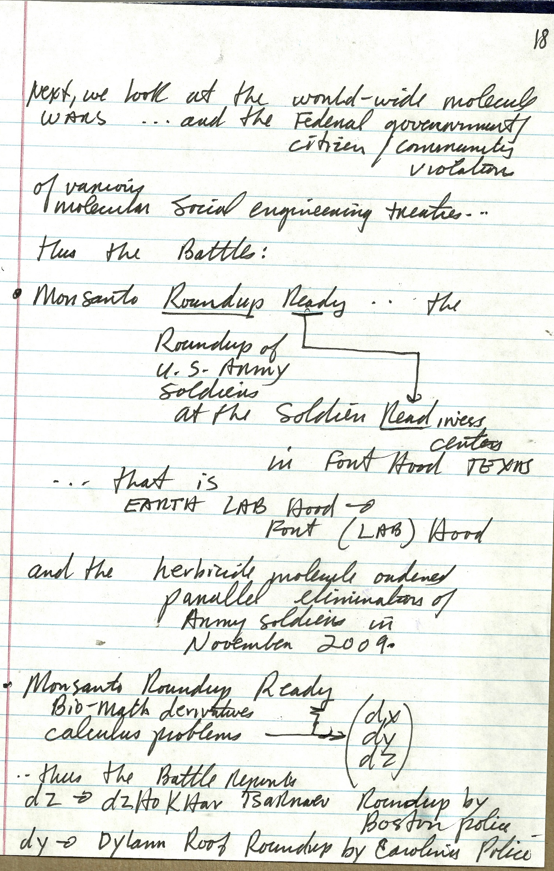 18
Next, we look at the world-wide molecule
WARS ... and the Federal government/
citizen/community
violation
of various
molecular social engineering treaties...
thus the Battles:
• Monsanto Roundup Ready ... the
Roundup of
U.S. Army
soldiers
at the Soldier Readiness
center
in Font Hood TEXAS
... that is
EARTH LAB Hood →
Font (LAB) Hood
and the herbicide molecule ordered
parallel elimination of
Army soldiers in
November 2009.
• Monsanto Roundup Ready
Bio-Math derivatives
calculus problems → (dx
dy
dz)
... thus the Battle Reports
dz → dzHoKHar Tsarnaev Roundup by
Boston police
dy → Dylann Roof Roundup by Carolinas Police